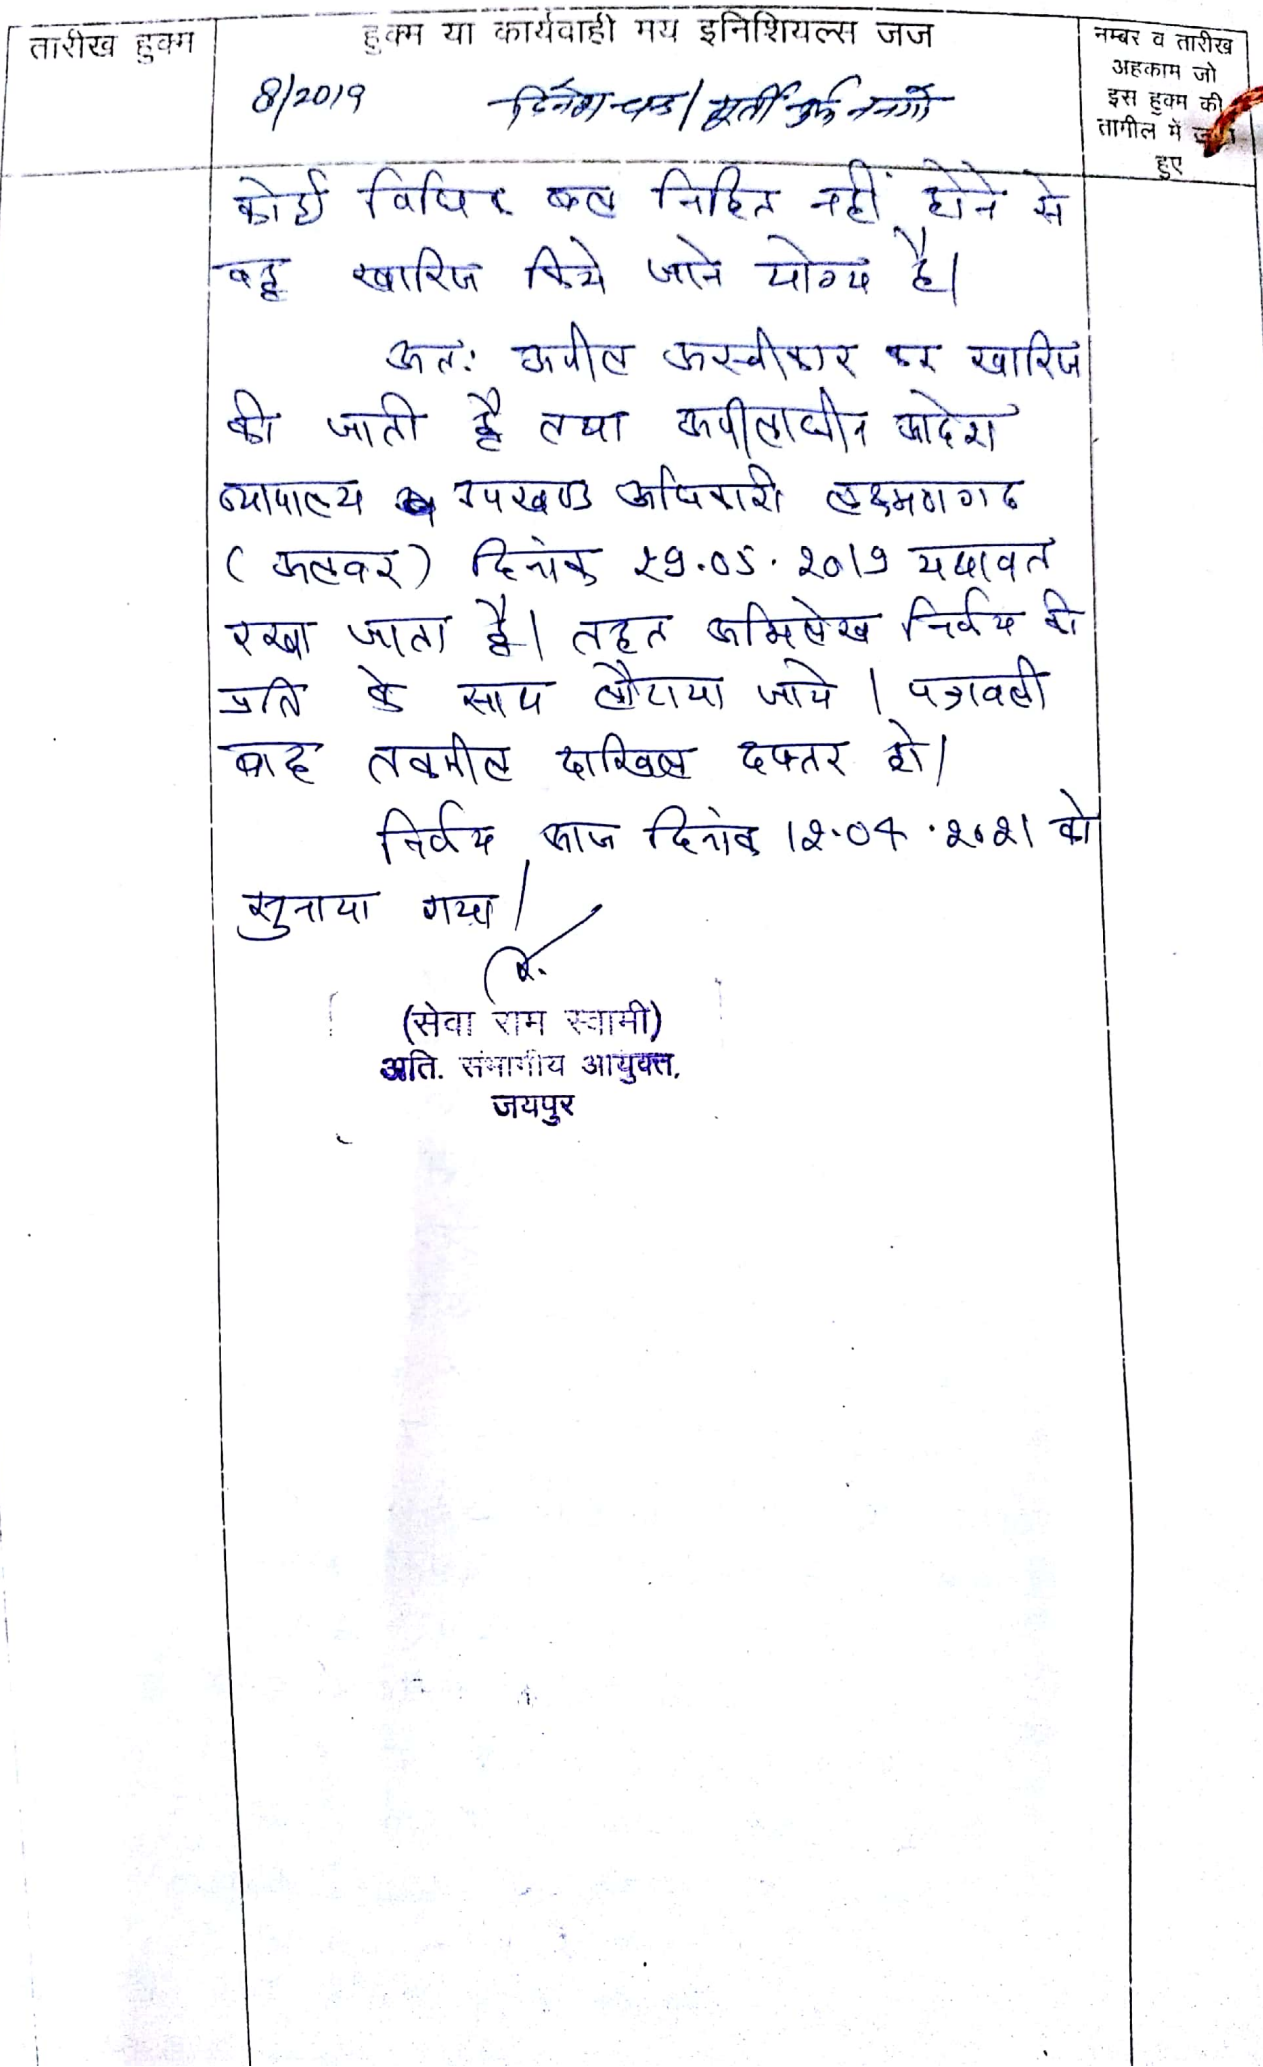 तारीख हुक्म
हुक्म या कार्यवाही मय इनिशियल्स जज
नम्बर व तारीख
अहकाम जो
इस हुक्म की
तामील में
हुए
8/2019 दिनेश चन्द / मूर्ती उर्फ
कोई विधिक बल निहित नहीं होने से
वह खारिज किये जाने योग्य है।
अतः अपील अस्वीकार कर खारिज
की जाती है तथा अपीलाधीन आदेश
न्यायालय उपखण्ड अधिकारी लक्ष्मणगढ
(अलवर) दिनांक 29.05.2019 यथावत
रखा जाता है। तहत अभिलेख निर्णय की
प्रति के साथ लौटाया जाये। पत्रावली
बाद तकमील दाखिल दफ्तर हो।
निर्णय आज दिनांक 12.04.2021 को
सुनाया गया।
(सेवा राम स्वामी)
अति. संभागीय आयुक्त,
जयपुर